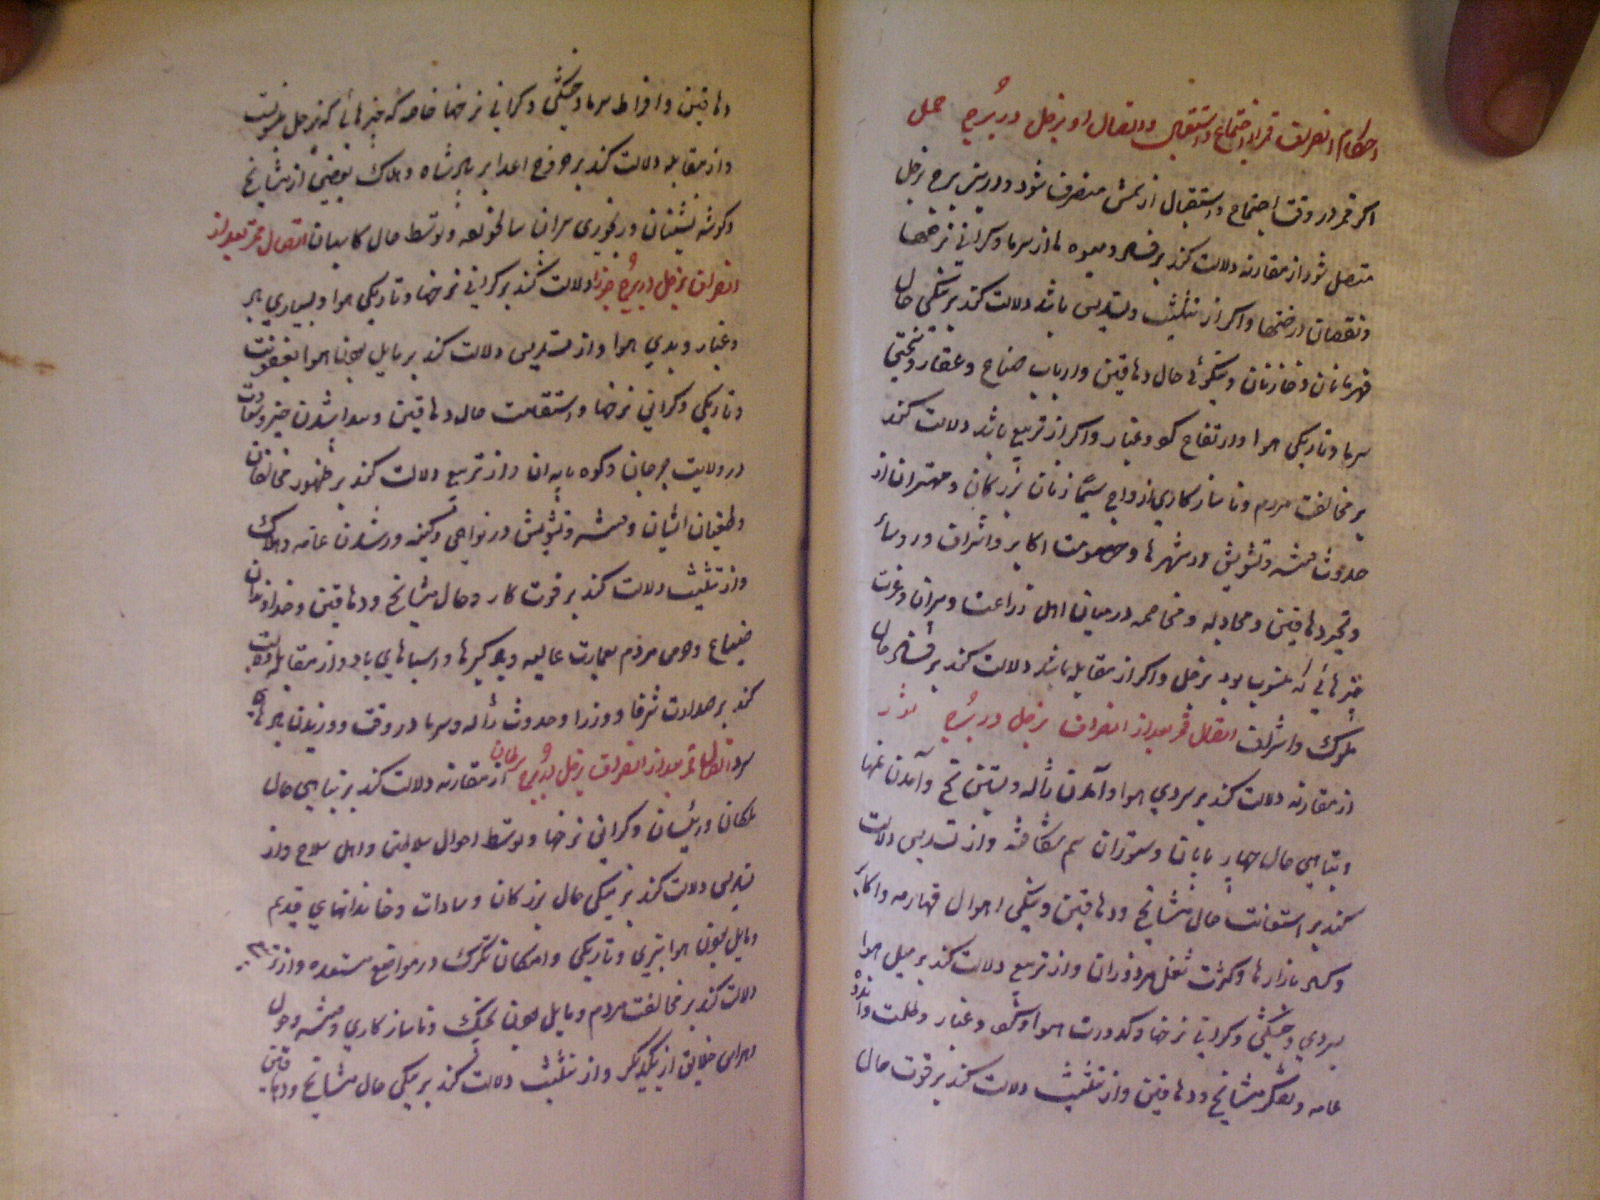 احکام انصراف قمر از اجتماع و استقبال و اتصال او بزحل در برج حمل
اکر قمر در وقت اجتماع و استقبال از شمس منصرف شود و درین برج بزحل
متصل شود از مقارنه دلالت کند بر فساد میوه ها از سرما و کرانی نرخها
و نقصان درختها و اکر از تثلیث و تسدیس باشد دلالت کند بر نیکی حال
قهرمانان و خازنان و نیکوئی حال دهاقین و ارباب ضیاع و عقار و سختی
سرما و تاریکی هوا و ارتفاع کرد و غبار و اکر از تربیع باشد دلالت کند
بر مخالفت مردم و ناسازکاری ازواج سیما زنان بزرکان و مهتران از
حدوث فتنه و تشویش در شهرها و خصومت اکابر و اشراف و روساء
و تحیر دهاقین و مجادله و مخاصمه در میان اهل زراعت و پیران و عزت
چیزهائی که منسوب بود بزحل و اکر از مقابله باشد دلالت کند بر فساد حال
ملوک و اشراف اتصال قمر بعد از انصراف بزحل در برج ثور
از مقارنه دلالت کند بر سردی هوا و آمدن ژاله و بستن یخ و آمدن غمها
و تباهی حال چهار پایان و ستوران سم شکافته و از تسدیس دلالت
کند بر استقامت حال مشایخ و دهاقین و نیکی احوال قهارمه و اکابر
و کساد بازارها و کثرت شغل مزدوران و از تربیع دلالت کند بر میل هوا
بسردی و خشکی و کرانی نرخها و کدورت هوا و کرد و غبار و ظلمت و اندوه
عامه و تفکر مشایخ و دهاقین و از تثلیث دلالت کند بر قوت حال
دهاقین و افراط سرما و خشکی و کرانی نرخها خاصه که چیزهائی که بزحل منسوبست
و از مقابله دلالت کند بر خروج اعدا بر پادشاه و هلاک بعضی از مشایخ
و کوشه نشینان و رنجوری پیران سالخورده و توسط حال کاسبان اتصال قمر بعد از
انصراف بزحل در برج جوزا دلالت کند بر کرانی نرخها و تاریکی هوا و بسیاری ابر
و غبار و بدی هوا و از تسدیس دلالت کند بر مایل بودن هوا بعفونت
و تاریکی و کرانی نرخها و استقامت حال دهاقین و پیدا شدن خیر و سعادت
در ولایت جرجان و کوه پایه ان و از تربیع دلالت کند بر ظهور مخالفان
و طغیان ایشان و فتنه و تشویش در نواحی و کینه ورشدن عامه و هلاک
و از تثلیث دلالت کند بر قوت کار و حال مشایخ و دهاقین و خداوندان
ضیاع و حرص مردم بعمارت عالیه و بادکیرها و اسباهای باد و از مقابله دلالت
کند بر صدارت شرفا و وزرا و حدوث ژاله و سرما در وقت و وزیدن بادهای
سرد اتصال قمر بعد از انصراف بزحل در برج سرطان از مقارنه دلالت کند بر تباهی حال
ملکان و رئیسان و کرانی نرخها و توسط احوال سلاطین و اهل سلاح و از
تسدیس دلالت کند بر نیکی حال بزرکان و سادات و خاندانهای قدیم
و مایل بودن هوا بتیری و تاریکی و امکان تکرک در مواضع مستعده و از تربیع
دلالت کند بر مخالفت مردم و مایل بودن بجنک و ناسازکاری و فتنه و خوف
و هراس خلایق از یکدیکر و از تثلیث دلالت کند بر نیکی حال مشایخ و دهاقین